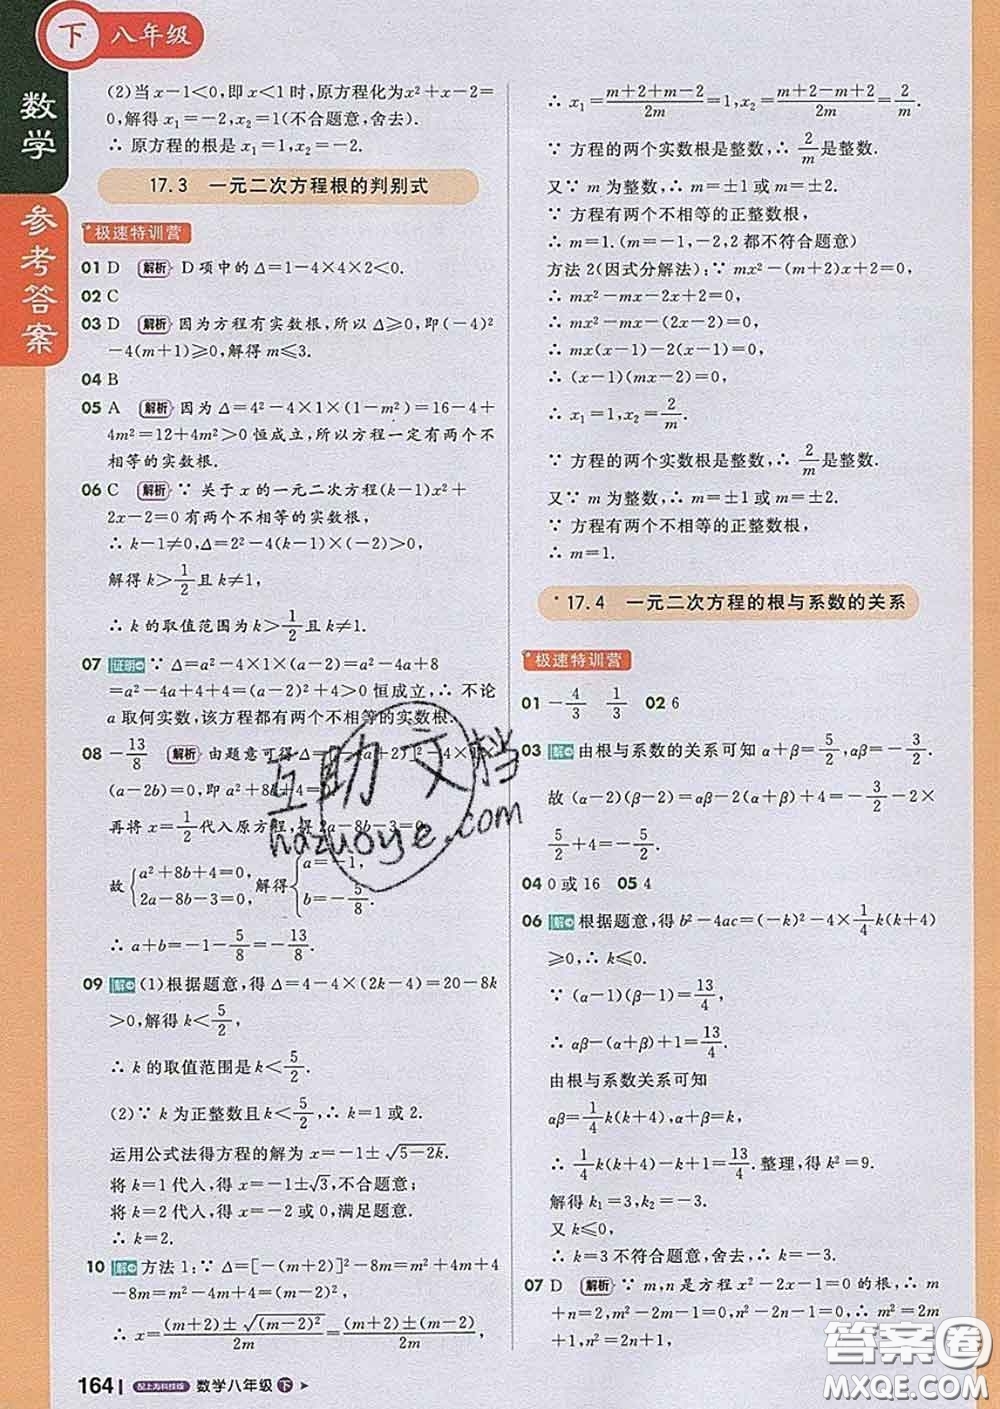 下 八年级
数学
参考答案
(2)当 x-1<0,即 x<1 时,原方程化为x²+x-2=
0,解得 x₁=-2,x₂=1(不合题意,舍去).
∴ 原方程的根是 x₁=1,x₂=-2.
17.3 一元二次方程根的判别式
极速特训营
01 D 解析 D 项中的 Δ=1-4×4×2<0.
02 C
03 D 解析 因为方程有实数根,所以 Δ≥0,即(-4)²
-4(m+1)≥0,解得 m≤3.
04 B
05 A 解析 因为 Δ=4²-4×1×(1-m²)=16-4+
4m²=12+4m²>0 恒成立,所以方程一定有两个不
相等的实数根.
06 C 解析 ∵ 关于 x 的一元二次方程(k-1)x²+
2x-2=0 有两个不相等的实数根,
∴ k-1≠0,Δ=2²-4(k-1)×(-2)>0,
解得 k>1/2 且 k≠1,
∴ k 的取值范围为 k>1/2 且 k≠1.
07 证明 ∵ Δ=a²-4×1×(a-2)=a²-4a+8
=a²-4a+4+4=(a-2)²+4>0 恒成立,∴ 不论
a 取何实数,该方程都有两个不相等的实数根.
08 -13/8 解析 由题意可得 Δ=
(a-2b)=0,即 a²+8b+4=
再将 x=1/2 代入原方程,得 2a-8b-3=0
故{a²+8b+4=0, 2a-8b-3=0, 解得{a=-1, b=-5/8.
∴ a+b=-1-5/8=-13/8.
09 解 (1)根据题意,得 Δ=4-4×(2k-4)=20-8k
>0,解得 k<5/2,
∴ k 的取值范围是 k<5/2.
(2)∵ k 为正整数且 k<5/2,∴ k=1 或 2.
运用公式法得方程的解为 x=-1±√(5-2k).
将 k=1 代入,得 x=-1±√3,不合题意;
将 k=2 代入,得 x=-2 或 0,满足题意.
∴ k=2.
10 解 方法 1:∵ Δ=[-(m+2)]²-8m=m²+4m+4
-8m=m²-4m+4=(m-2)²,
∴ x=((m+2)±√(m-2)²)/2m=((m+2)±(m-2))/2m,
∴ x₁=(m+2+m-2)/2m=1,x₂=(m+2-m+2)/2m=2/m.
∵ 方程的两个实数根是整数,∴ 2/m 是整数.
又∵ m 为整数,∴ m=±1 或 m=±2.
∵ 方程有两个不相等的正整数根,
∴ m=1.(m=-1,-2,2 都不符合题意)
方法 2(因式分解法):∵ mx²-(m+2)x+2=0,
∴ mx²-mx-(2x-2)=0,
∴ mx(x-1)-2(x-1)=0,
∴ (x-1)(mx-2)=0,
∴ x₁=1,x₂=2/m.
∵ 方程的两个实数根是整数,∴ 2/m 是整数.
又∵ m 为整数,∴ m=±1 或 m=±2.
∵ 方程有两个不相等的正整数根,
∴ m=1.
17.4 一元二次方程的根与系数的关系
极速特训营
01 -4/3 1/3 02 6
03 解 由根与系数的关系可知 α+β=5/2,αβ=-3/2.
故 (α-2)(β-2)=αβ-2(α+β)+4=-3/2-2×
5/2+4=-5/2.
04 0 或 16 05 4
06 解 根据题意,得 b²-4ac=(-k)²-4×1/4k(k+4)
≥0,∴ k≤0.
∵ (α-1)(β-1)=13/4,
∴ αβ-(α+β)+1=13/4.
由根与系数关系可知
αβ=1/4k(k+4),α+β=k,
∴ 1/4k(k+4)-k+1=13/4.整理,得 k²=9.
解得 k₁=3,k₂=-3.
又 k≤0,
∴ k=3 不符合题意,舍去,∴ k=-3.
07 D 解析 ∵ m,n 是方程 x²-2x-1=0 的根,∴ m
+n=2,m²-2m-1=0,n²-2n-1=0,∴ m²=2m
+1,n²=2n+1,
164 配上海科技版 数学八年级 下
互助文档
hazuoye.com
答案圈
MXQE.COM